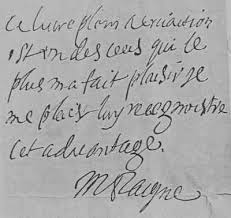 Ce livre plein d erudition
est un des ceus qui le
plus m a fait plaisir je
me plais luy recognoistre
cet advantage.